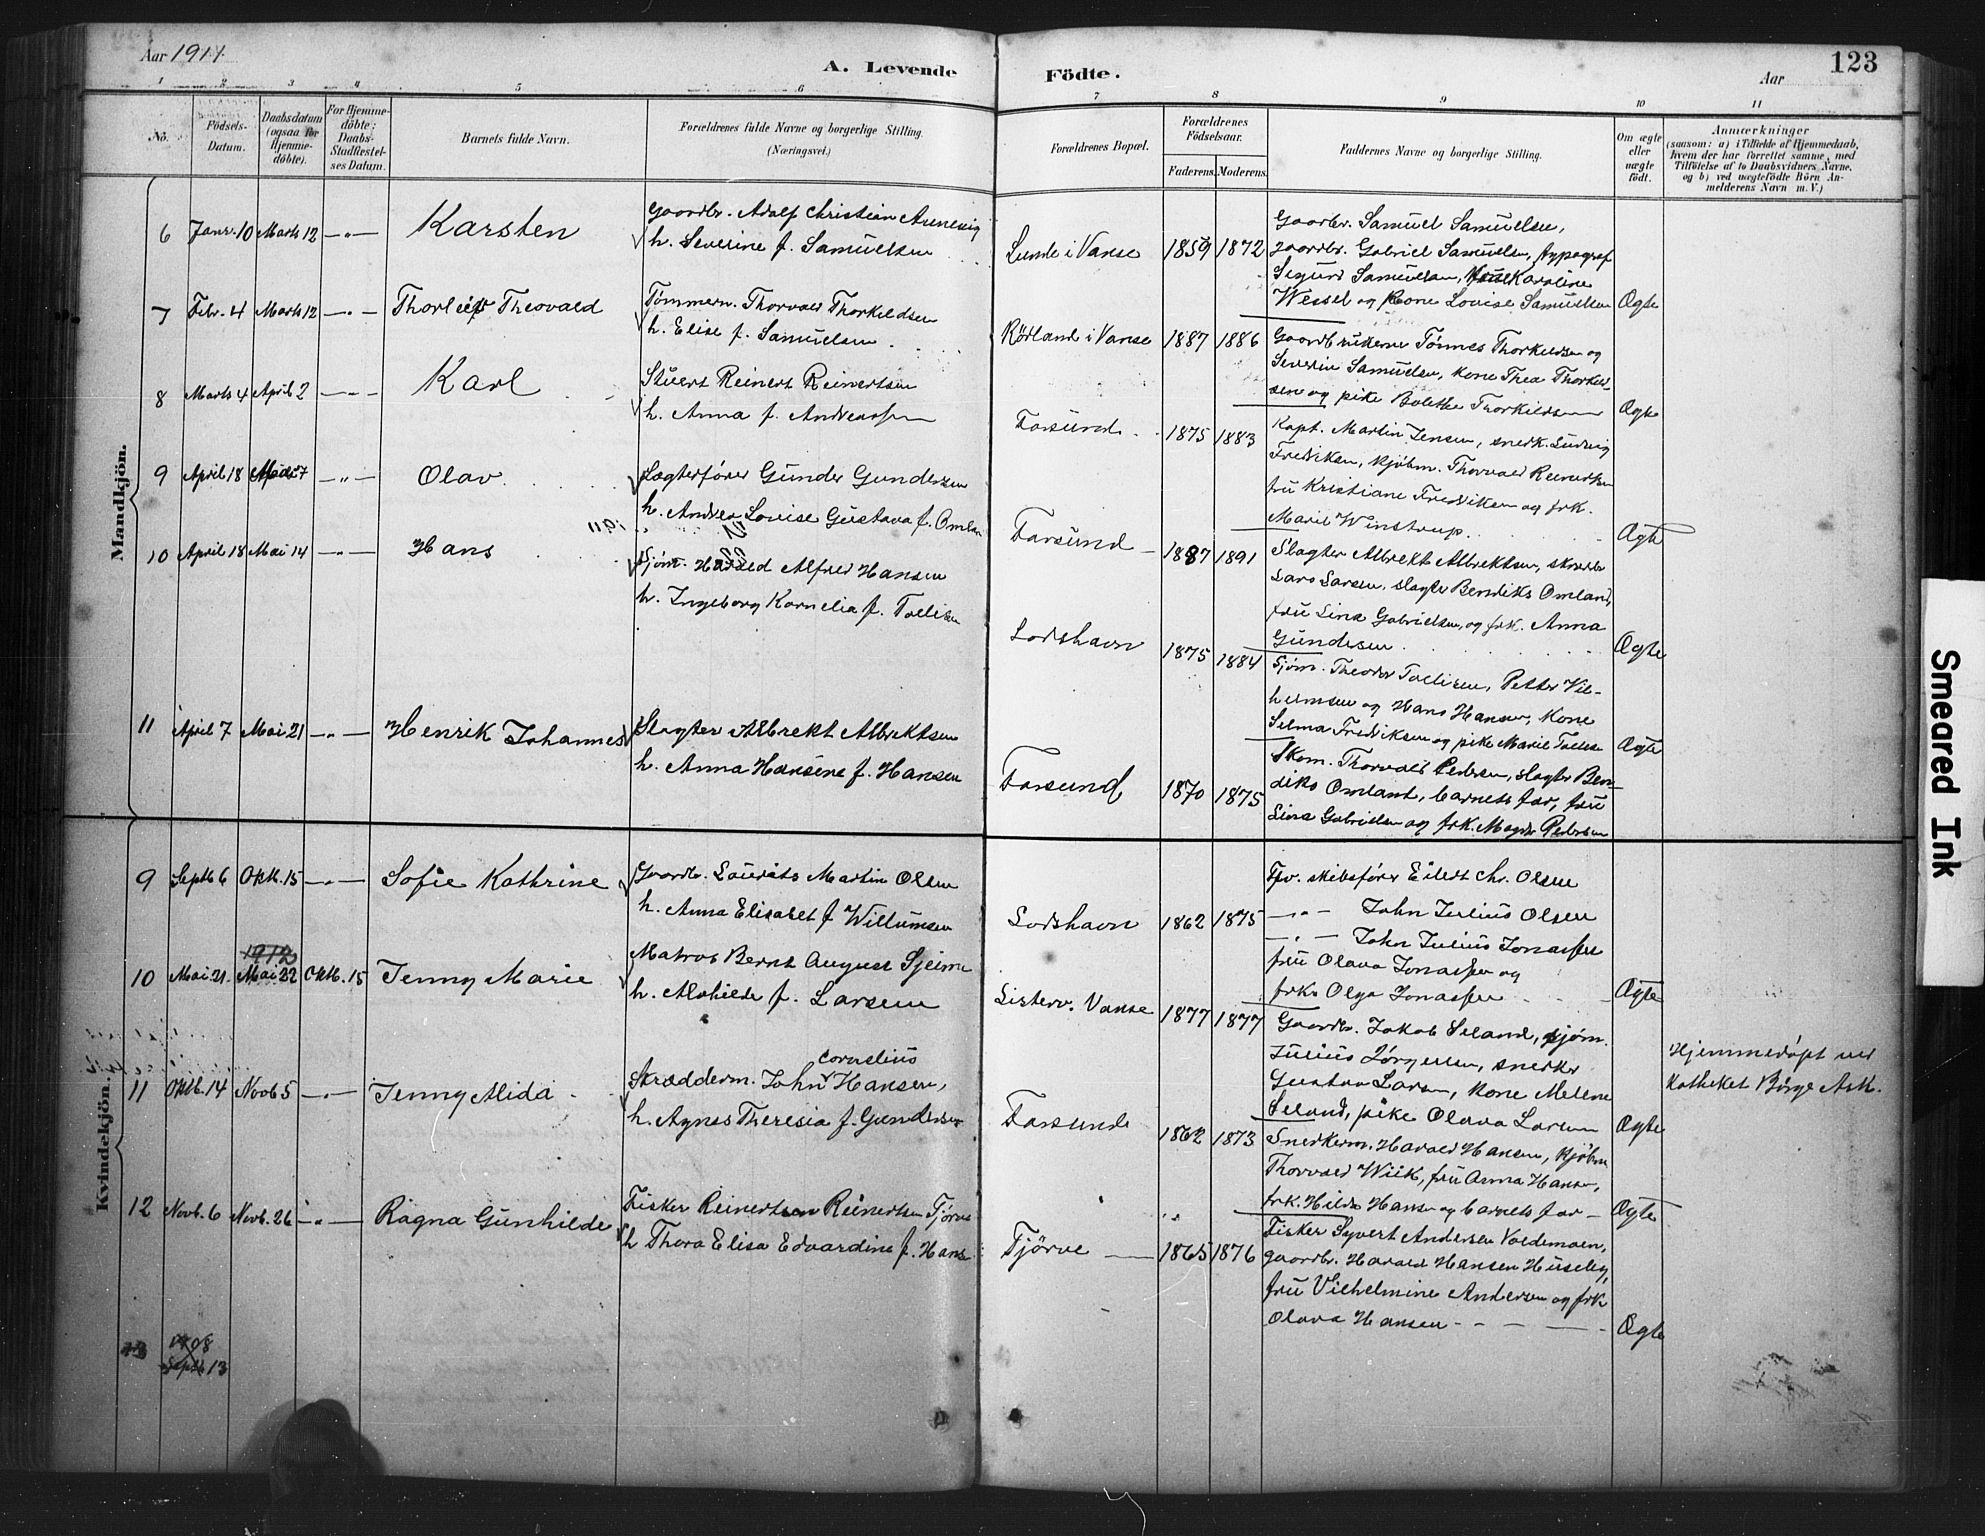 Aar 1911.
A. Levende
Födte.
Aar
123
1 2 3 4 5 6
7 8 9 10 11
No.
Födsels-
Datum.
Daabsdatum
(ogsaa for
Hjemme-
döbte).
For Hjemme-
döbte:
Daabs-
Stadfæstel-
ses Datum.
Barnets fulde Navn.
Forældrenes fulde Navne og borgerlige Stilling.
(Næringsvei.)
Forældrenes Bopæl.
Forældrenes
Födselsaar.
Faderens. Moderens.
Faddernes Navne og borgerlige Stilling.
Om ægte
eller
uægte
födt.
Anmærkninger
(saasom: a) i Tilfælde af Hjemmedaab,
hvem der har forrettet samme, med
Tilföielse af to Daabsvidners Navne.
og b) ved uægtefödte Börn An-
melderens Navn m. V.)
Mandkjön.
6 Janr. 10 Marts 12 —"— Karsten
Gaardbr. Adolf Christian
h. Severine f. Samuelsen
Lunde i Vanse 1859 1872
Gaardbr. Samuel Samuelsen,
gaardbr. Gabriel Samuelsen, typograf
Sigurd Samuelsen, frue Karoline
Wessel og kone Lovise Samuelsen Ægte
7 Febr. 4 Marts 12 —"— Thorleif Theovald
Tømmerm. Thorvald Thorkildsen
h. Elise f. Samuelsen
i Vanse 1887 1886
Gaardbrukerne Tönnes Thorkildsen og
Severin Samuelsen, kone Thea Thorkild-
sen og pike Bolethe Thorkildsen Ægte
8 Marts 4 April 2 —"— Karl
Stuert Reinert Reinertsen
h. Anna f. Andreassen
Farsund 1875 1883
Kapt. Martin Jensen, snerk. Ludvig
Fredriksen, kjøbm. Thorvald Reinertsen
fru Kristiane Fredriksen og frk.
Marie Winstrup Ægte
9 April 18 Mai 7 —"— Olav
Slagterfører Gunder Gundersen
h. Andrea Lovise Gustava f. Omland
Farsund — 1887 1891
Slagter Albrekt Albrektsen,
Lars Larsen, slagter Bendiks Omland,
fru Lina Gabrielsen, og frk. Anna
Gundersen Ægte
1911
10 April 18 Mai 14 —"— Hans
Sjøm. Harald Alfred Hansen
h. Ingeborg Kornelia f. Tollisen
Lodshavn 1875 1884
Sjøm. Theodor Tollisen, Petter Vil-
helmsen og Hans Hansen, kone
Selma Fredriksen og pike Marie Ægte
11 April 7 Mai 21 —"— Henrik Johannes
Slagter Albrekt Albrektsen
h. Anna Hansine f. Hansen
Farsund 1870 1875
Skom. Thorvald Pedersen, slagter Ben-
diks Omland, barnets far, fru
Lina Gabrielsen og frk. Magda Pedersen
Kvindekjön.
9 Septb 6 Oktb. 15 —"— Sofie Kathrine
Gaardbr. Lauritz Martin Olsen
h. Anna Elisabet f Willumsen
Lodshavn 1862 1875
Fpv. skibsfører Eilert Chr. Olsen
—"— John Julius Olsen
—"— John Julius Jonassen
fru Olava Jonassen og
frk. Olga Jonassen Ægte
1912
10 Mai 21. Mai 22 Oktb. 15 Jenny Marie
Matros Bernt August
h. Alvhilde f. Larsen
Listerv. Vanse 1877 1877
Gaardbr. Jakob Seland, sjøm.
Julius Jörgensen, snerker
Gustav Larsen, kone Melene
Seland, pike Olava Larsen Ægte
Hjemmedøpt ved
Kateket Börge Ask.
11 Oktb. 14 Novb 5 —"— Jenny Alida
Cornelius
Skrædderm. John Hansen,
h. Agnes Theresia f. Gundersen
Farsund 1862 1873
Snerkerm. Harald Hansen, kjöbm
Thorvald Wiik, fru Anna Hansen,
frk. Hilda Hansen og barnets far — Ægte
12 Novb. 6 Novb. 26 —"— Ragna Gunhilde
Fisker Reinertson Reinertsen Tjörve
h Thora Elisa Edvardine f. Hansen
Tjörve — 1865 1876
Fisker Syvert Andersen Vodemoen,
gaardbr. Harald Hansen Huseby,
fru Vilhelmine Andersen og frk
Olava Hansen — Ægte
13 1908
Septb 13
Smeared Ink